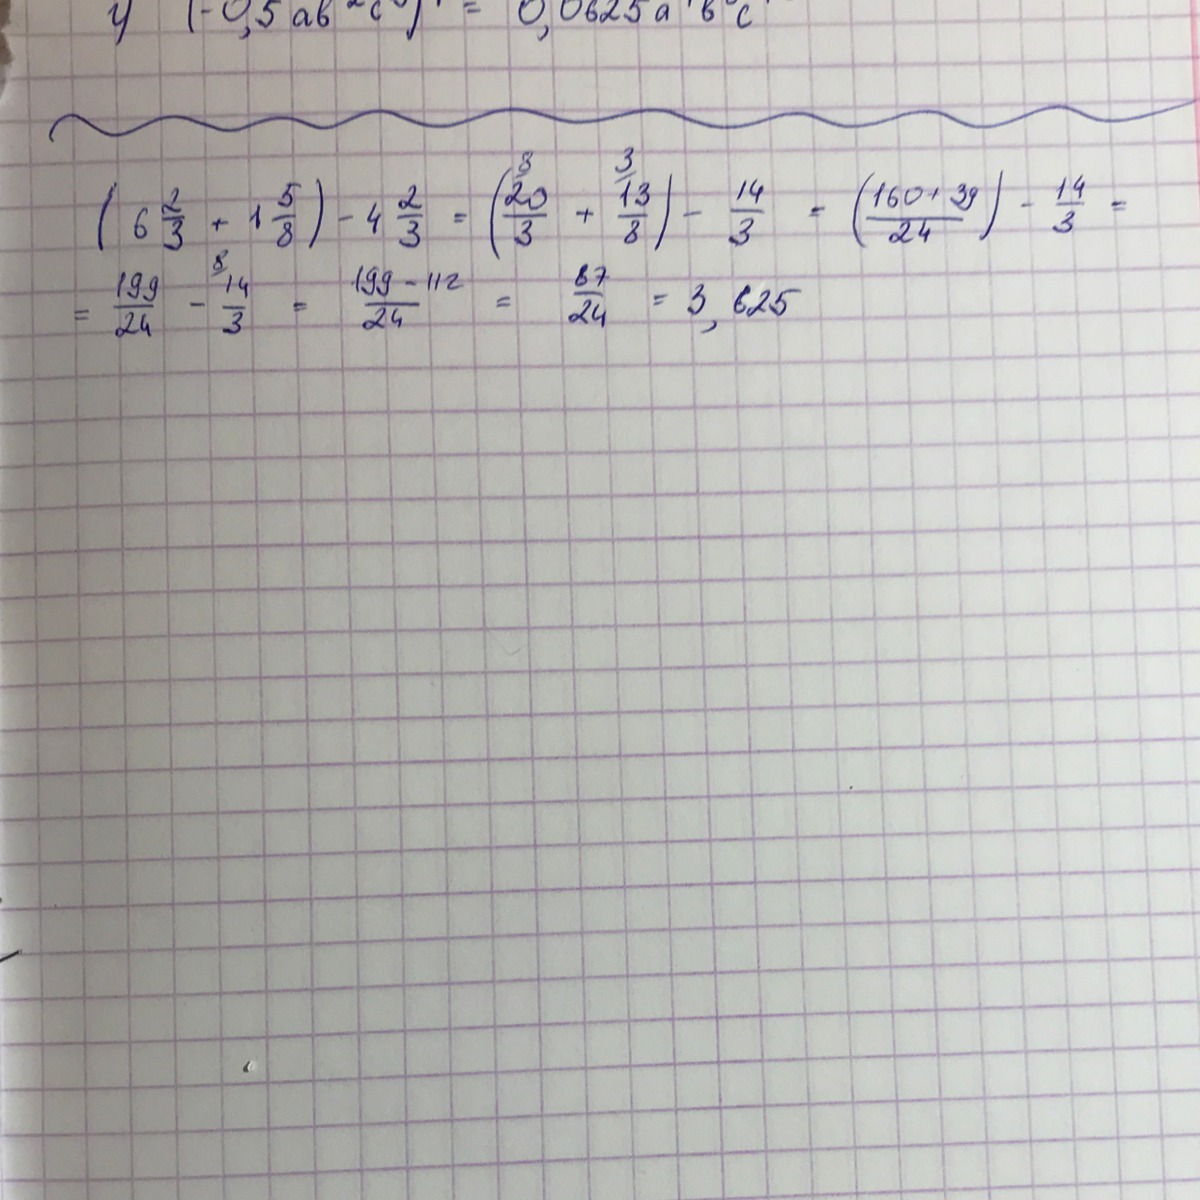 (-0,5ab²c )  = 0,0625a b c
(6 2/3 + 1 5/8) - 4 2/3 = (20/3 + 13/8) - 14/3 = (160+39/24) - 14/3 =
= 199/24 - 14/3 = 199-112/24 = 87/24 = 3,625